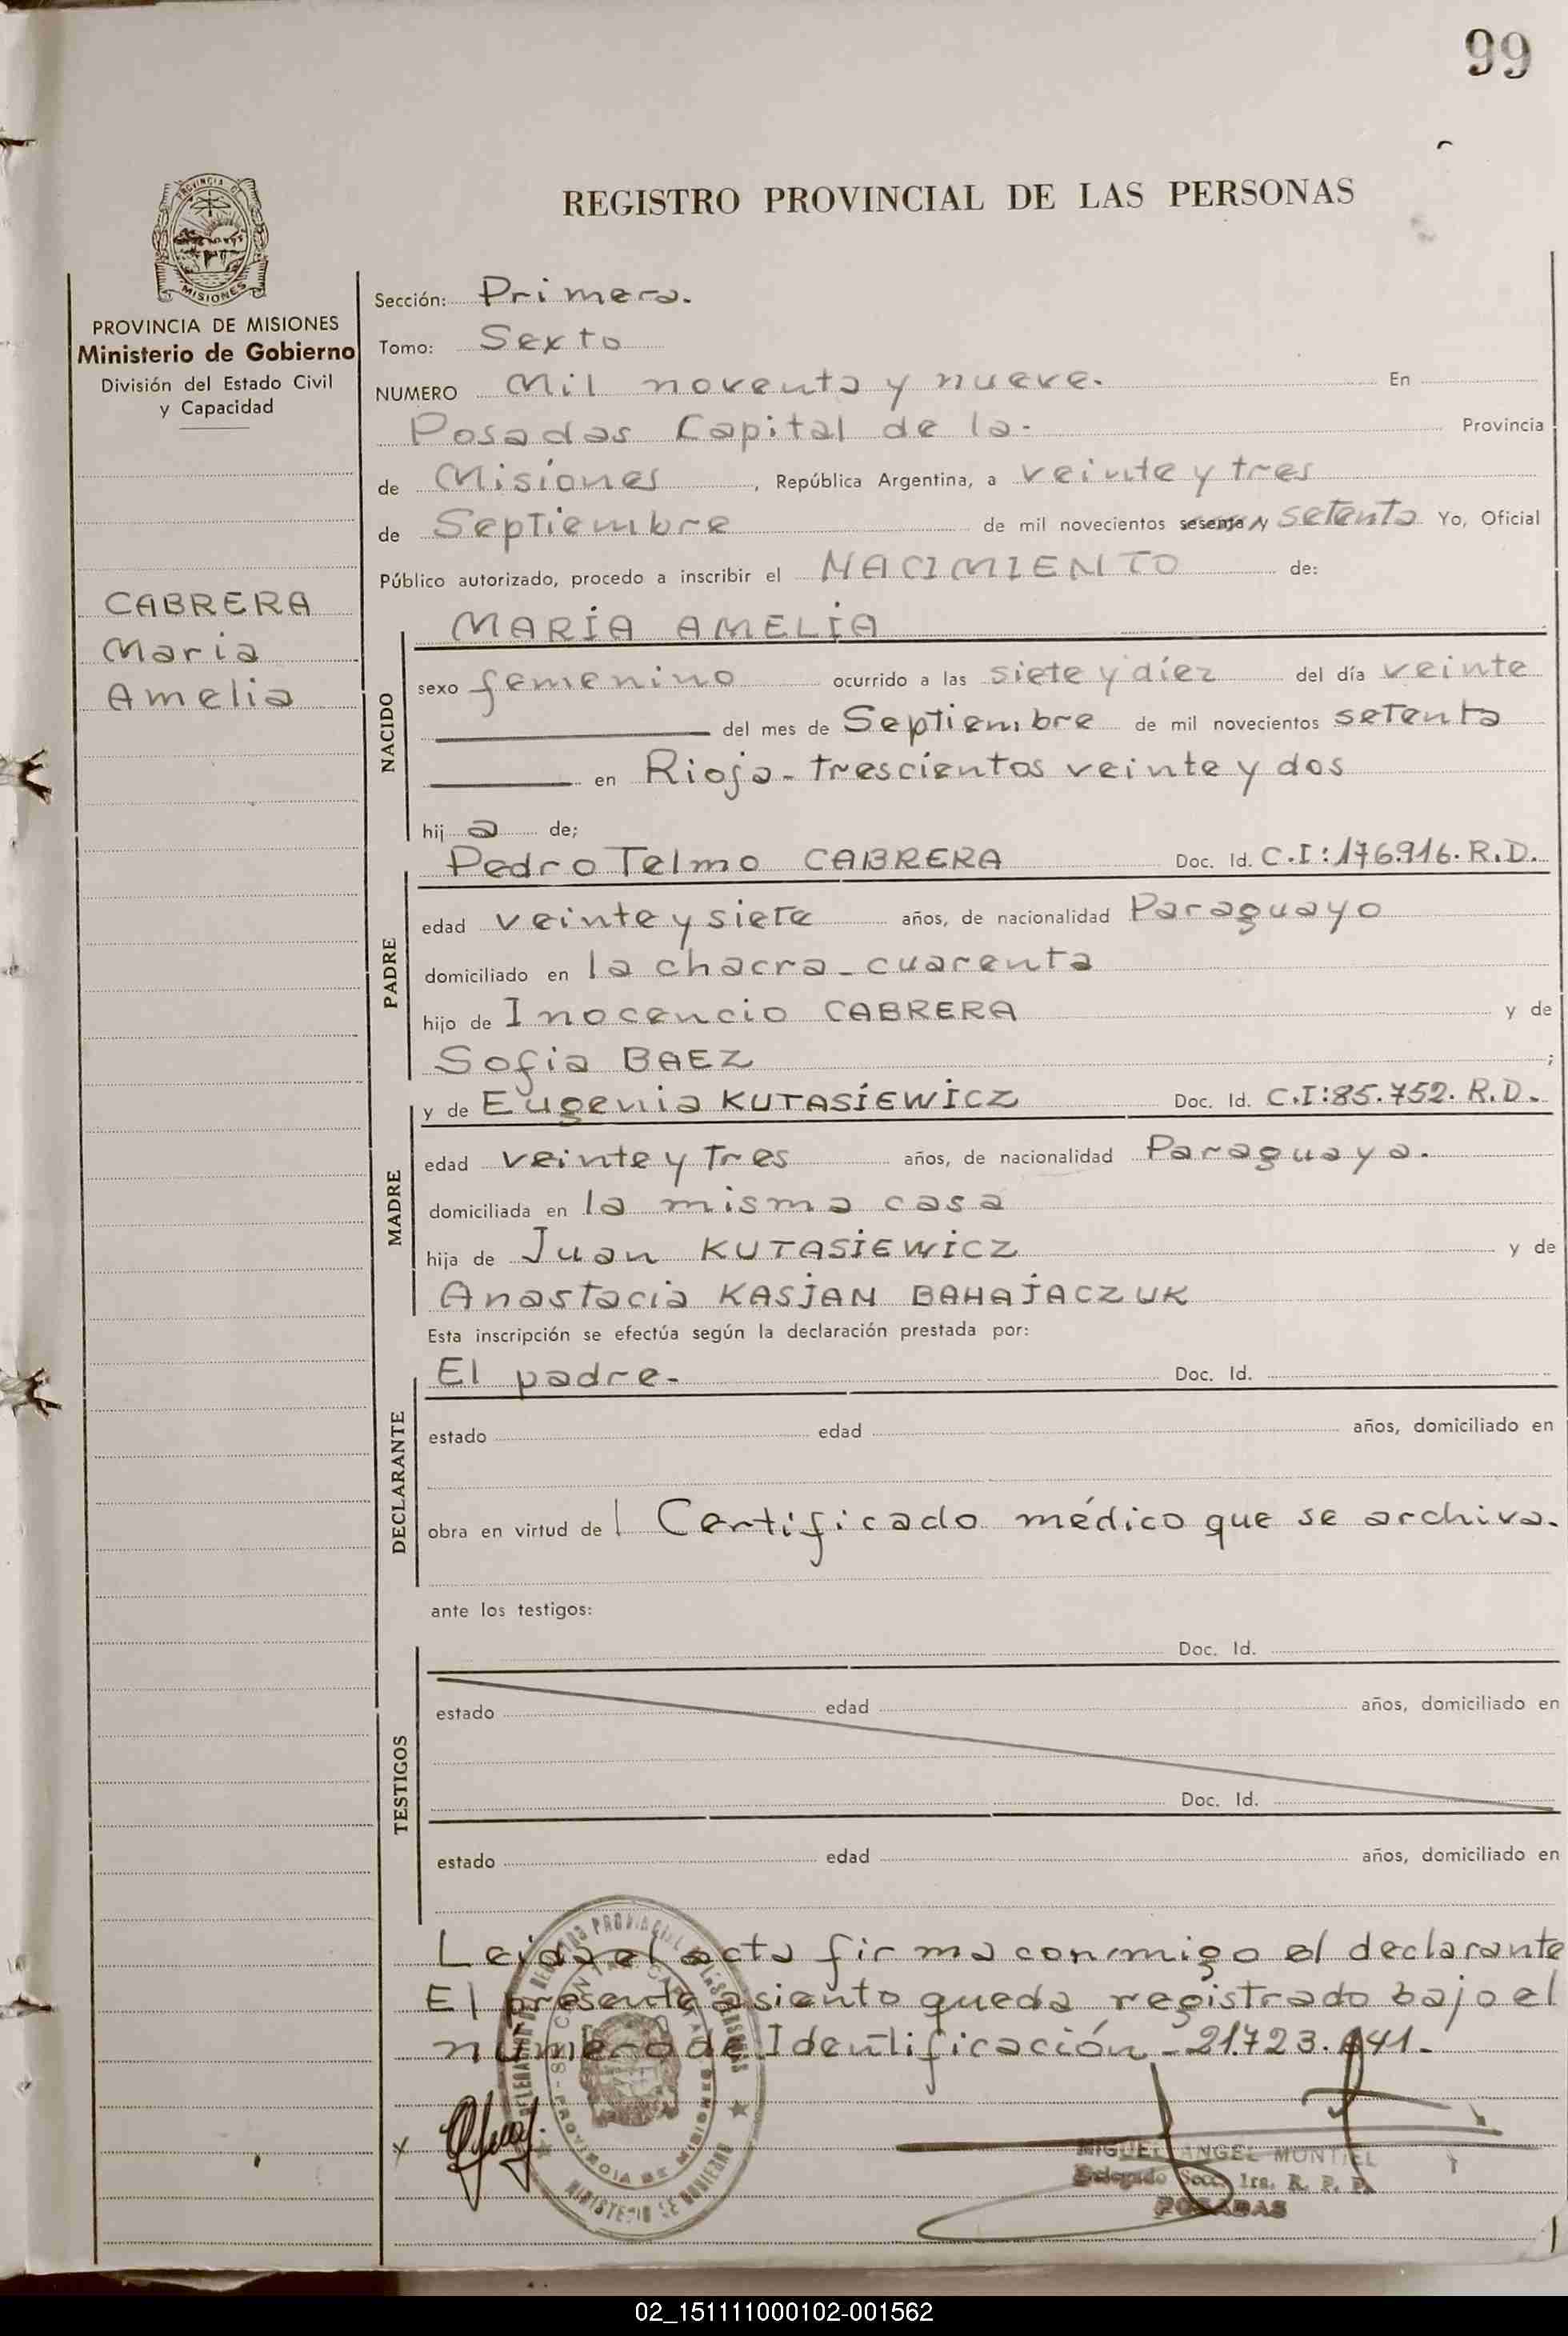 99
REGISTRO PROVINCIAL DE LAS PERSONAS
MISIONES
PROVINCIA DE MISIONES
Ministerio de Gobierno
División del Estado Civil
y Capacidad
CABRERA
Maria
Amelia
Sección: Primera.
Tomo: Sexto
NUMERO Mil noventa y nueve. En
Posadas Capital de la- Provincia
de Misiones, República Argentina, a veinte y tres
de Septiembre de mil novecientos sesenta y setenta Yo, Oficial
Público autorizado, procedo a inscribir el NACIMIENTO de:
MARÍA AMELIA
NACIDO
sexo femenino ocurrido a las siete y diez del día veinte
del mes de Septiembre de mil novecientos setenta
en Rioja- trescientos veinte y dos
hija de;
Pedro Telmo CABRERA Doc. Id. C.I:176.916. R.D.
PADRE
edad veinte y siete años, de nacionalidad Paraguayo
domiciliado en la chacra - cuarenta
hijo de Inocencio CABRERA y de
Sofia BAEZ ;
y de Eugenia KUTASIEWICZ Doc. Id. C.I:85.752. R.D.
MADRE
edad veinte y tres años, de nacionalidad Paraguaya.
domiciliada en la misma casa
hija de Juan KUTASIEWICZ y de
Anastacia KASJAN BAHAJACZUK
Esta inscripción se efectúa según la declaración prestada por:
El padre- Doc. Id.
DECLARANTE
estado edad años, domiciliado en
obra en virtud del Certificado médico que se archiva.
ante los testigos:
Doc. Id.
TESTIGOS
estado edad años, domiciliado en
Doc. Id.
estado edad años, domiciliado en
Leida el acta firma conmigo el declarante
El presente asiento queda registrado bajo el
número de Identificación - 21.723.
MIGUEL ANGEL MONTIEL
Delegado Secc. 1ra. R. P. P.
POSADAS
PROVINCIA DE MISIONES
MINISTERIO DE GOBIERNO
02_151111000102-001562